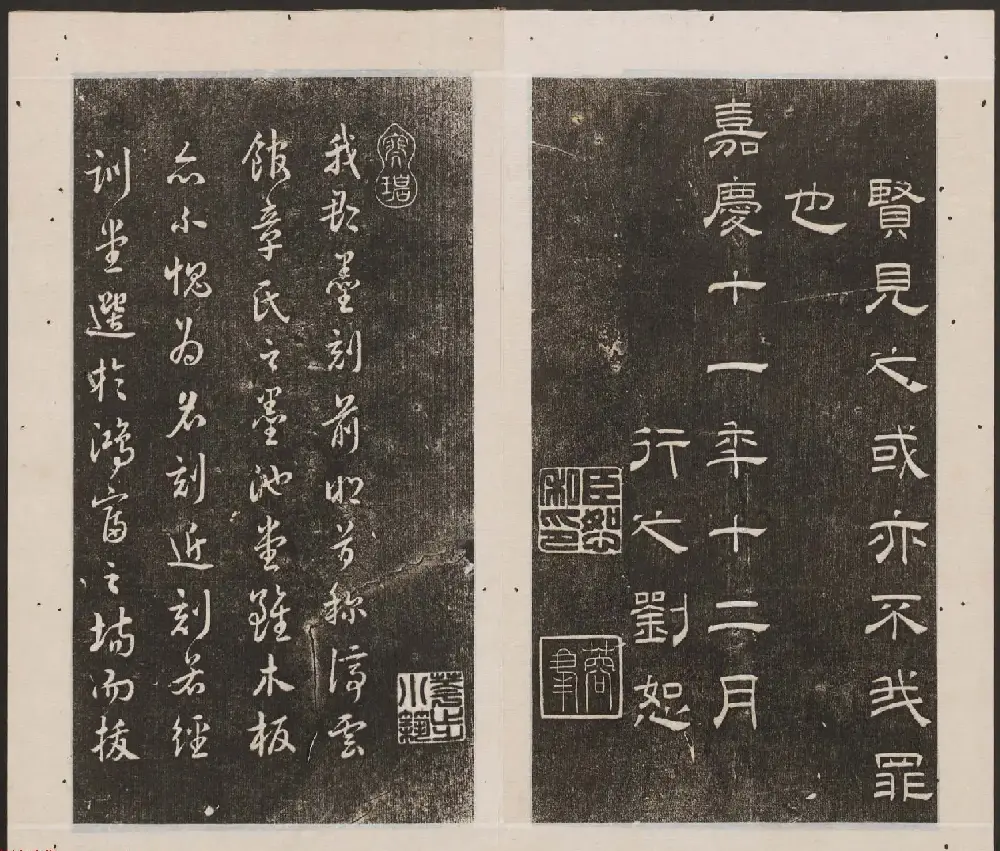 賢見之或亦不我罪
也
嘉慶十一年十二月
行之劉恕
臣恕私印
蓉峯
我郡墨刻前明首稱停雲
館章氏之墨池堂雖木板
亦不愧為名刻近刻若經
訓堂選於鴻富之場而拔
花步小築